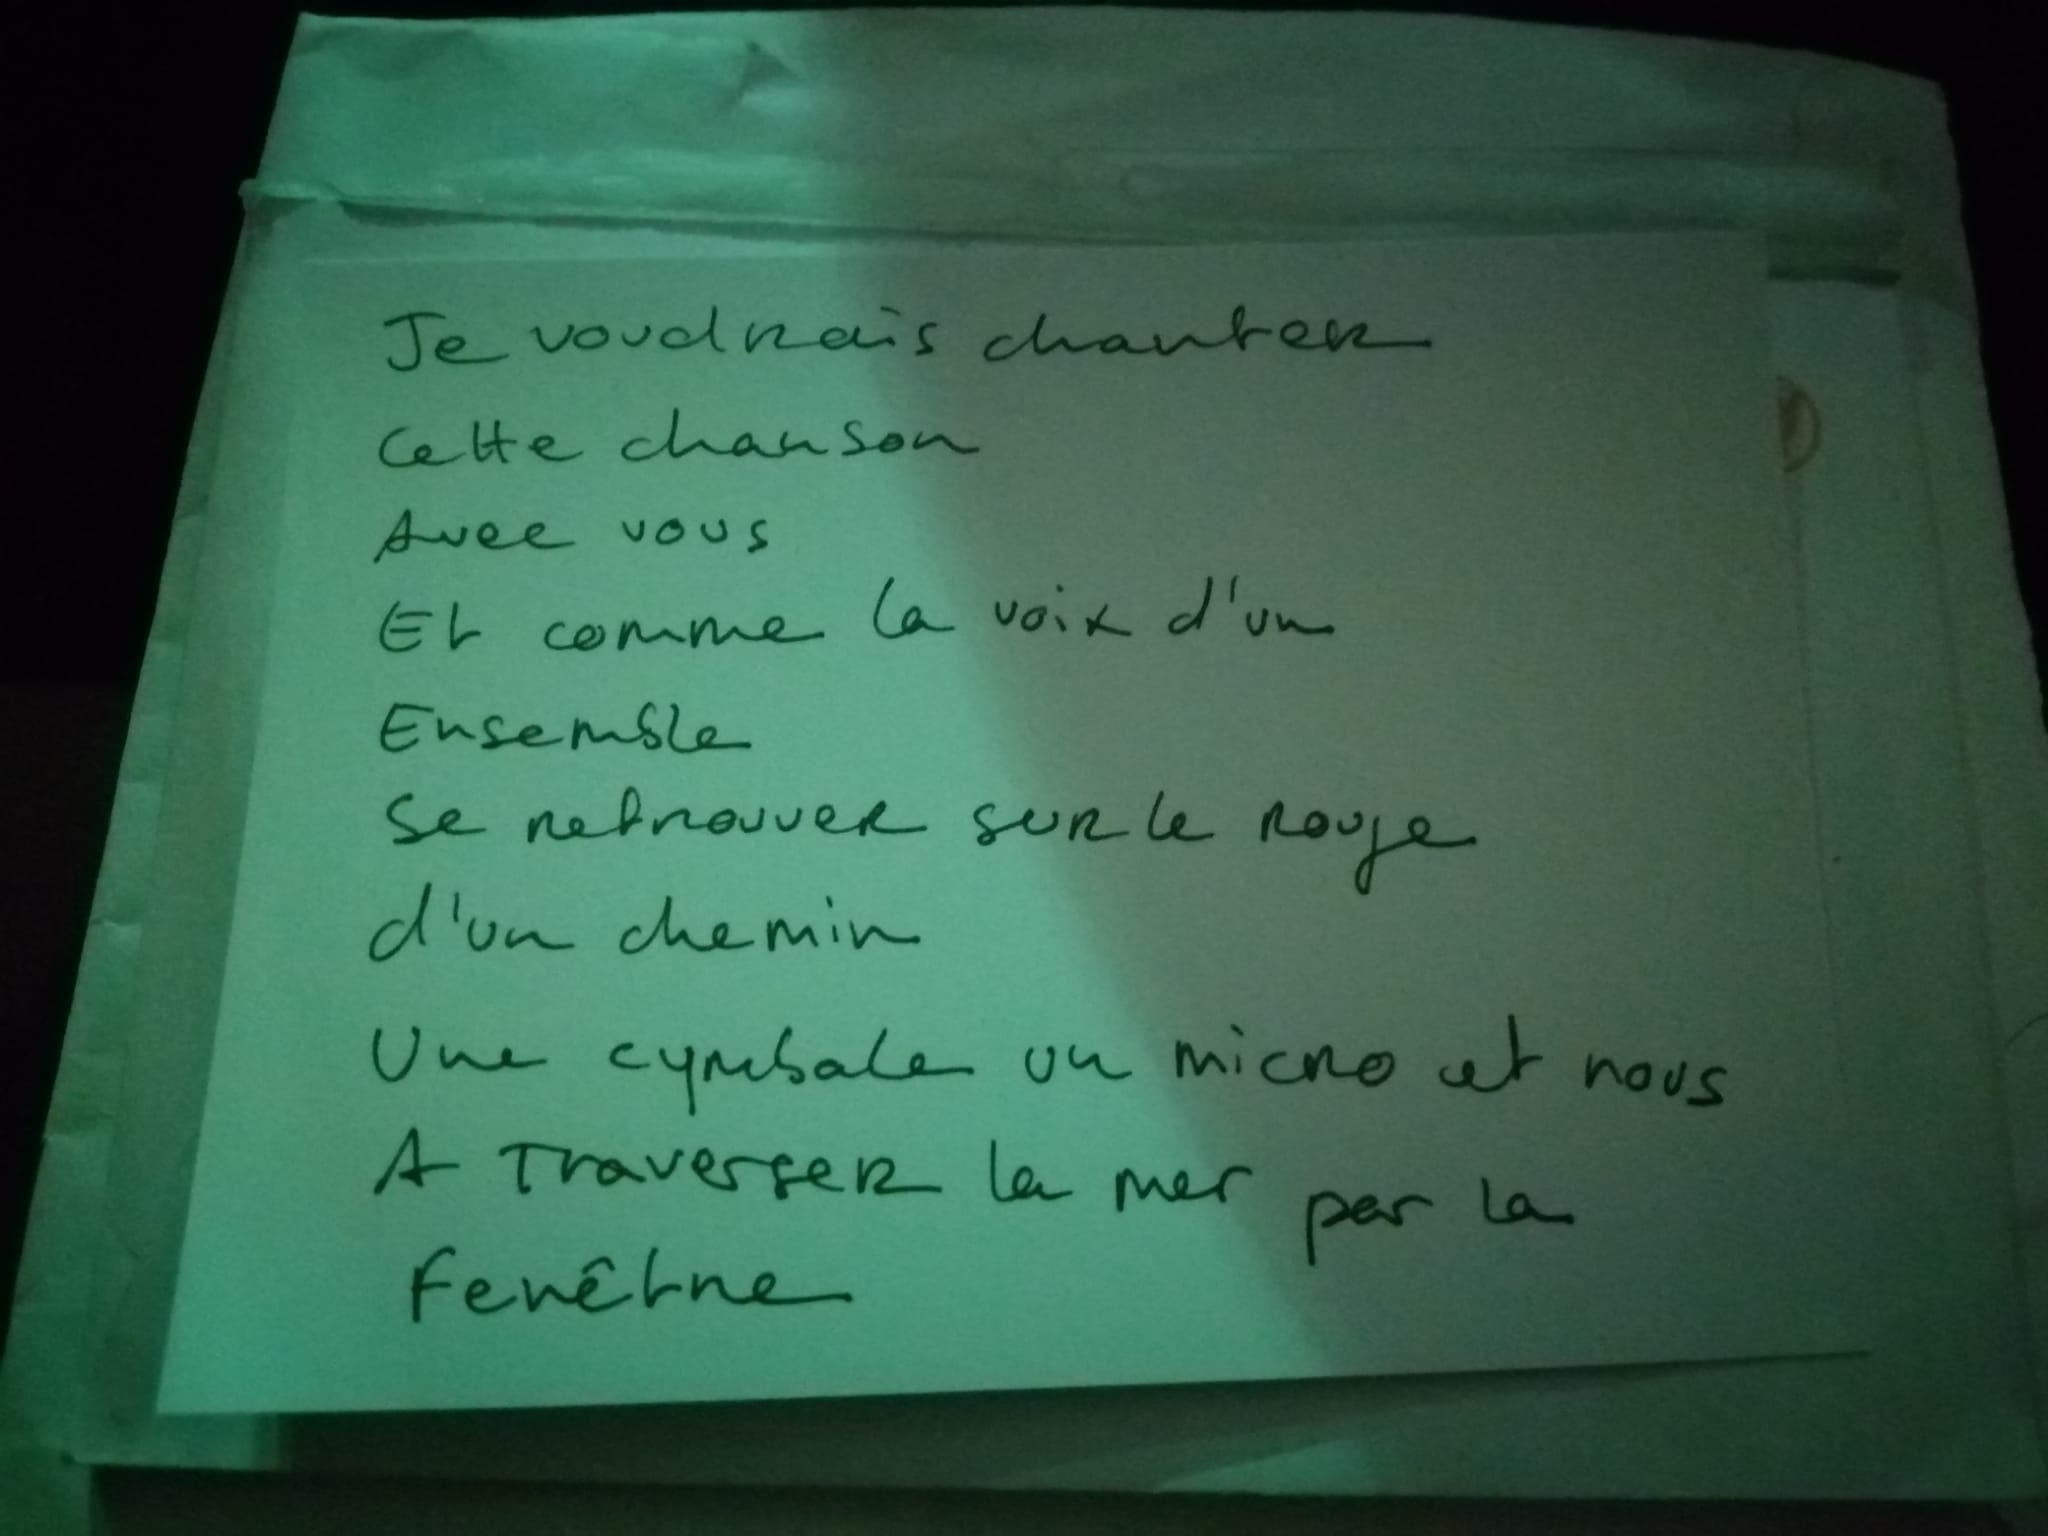 Je voudrais chanter
Cette chanson
Avec vous
Et comme la voix d'un
Ensemble
Se retrouver sur le rouge
d'un chemin
Une cymbale un micro et nous
A Traverser la mer par la
Fenêtre